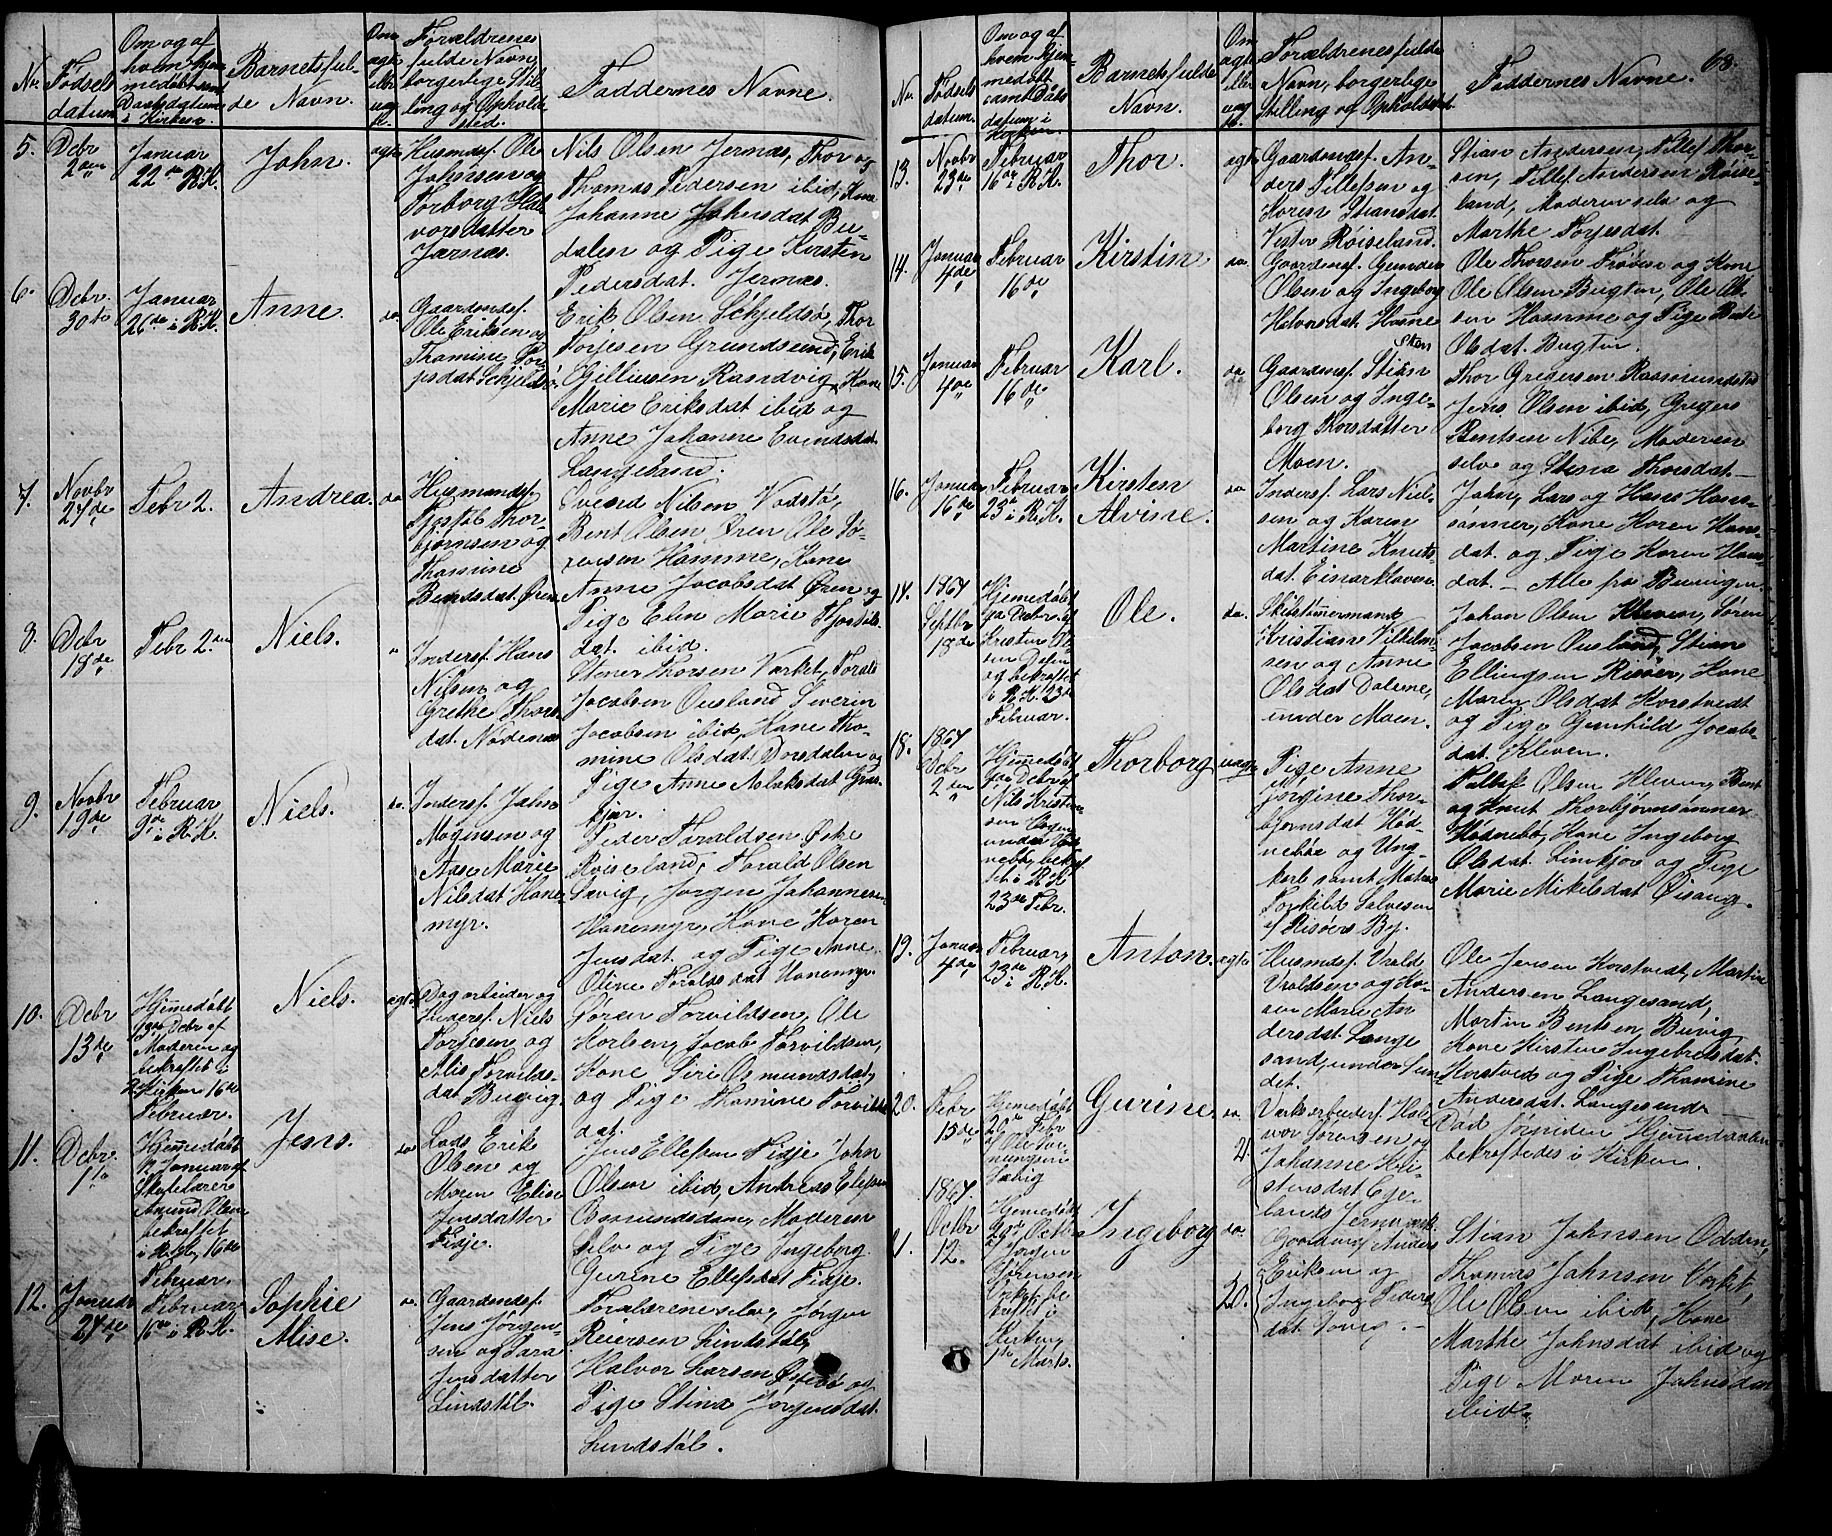 No.
Fødsels
datum.
Om og af
hvem hjem
medøbt samt
Daabsdatum
i Kirken.
Barnets ful-
de Navn.
Om
ægte
eller
uæg
te.
Forældrenes
fulde Navn,
borgerlige Stil-
ling og Opholds
sted.
Faddernes Navne.
5.
Debr
2den
Januar
22de R.K.
John.
ægte
Husmdsf. Ole
Johnsen og
Torborg Hal
vorsdatter
Jærnæs.
Nils Olsen Jernæs, Thor og
Thomas Pedersen ibid, Kone
Johanne Johnsdat Bu-
dalen og Pige Kirsten
Pedersdat. Jernæs.
6.
Debr.
30te
Januar
26de i R.K.
Anne.
do.
Gaardmdsf.
Ole Eriksen og
Thomine Tor
jesdat Schjeldsø
Erik Olsen Schjeldsø, Thor
Torjesen Grundsund, Erik
Gilliusen Randvig, Kone
Marie Eriksdat ibid og
Anne Johanne Evindsdat
Langeland.
7.
Novbr
24de
Febr 2.
Andrea.
do
Husmandsf.
Tjøstøl Thor-
bjørnsen og
Thomine
Bentsdat. Øren
Evend Nilsen Vodstø,
Bent Olsen Øren Ole To-
resen Hamme, Kone
Anne Jacobsdat Øren og
Pige Elen Marie Tjøstøls
dat. ibid.
8.
Debr
18de
Febr 2den
Niels.
"
Indersf. Hans
Nilsen og
Grethe Thors
dat. Nødenæs
Stener Thorsen Værket, Torald
Jacobsen Ousland Severin
Jacobsen ibid, Kone Tho-
mine Olsdat Dorsdalen og
Pige Anne Aslaksdat Gras
kjær.
9.
Novbr
19de
Februar
9de i R.K.
Niels.
do.
Indersf. John
Mogensen og
Aase Marie
Nilsdat Hane
myr.
Peder Toraldsen Øst
Røiseland, Torald Olsen
Savig, Jørgen Johannesen
Hanemyr, Kone Karen
Jensdat og Pige Anne
Oline Toraldsdat Hanemyr
10.
Debr
13de
Hjemmedøbt
Debr af
Moderen og
bekræftet i
Kirken 16de
Februar.
Niels.
ægte
Dagarbeider og
Indersf. Niels
Torjesen og
Alis Torvilds-
dat Bugvig
Søren Torvildsen, Ole
Karlsen, Jacob Torvildsen,
Kone Siri Osmundsdat,
og Pige Thomine Torvilds
dat.
11.
Debr.
1te
Hjemmedøbt
Januar af
Skolelærer
Amund Olsen
bekræftet
i R.K, 16de
Februar.
Jens.
do
Lods Erik
Olsen og
Maren Elise
Jensdatter
Fidje.
Jens Ellefsen Fidje John
Olsen ibid, Andreas Elefsen
Osmundsdam, Moderen
selv og Pige Ingeborg
Gurine Ellefsdat Fidje.
12.
Januar
24de
Februar
16de i R.K.
Sophie
Alise.
do.
Gaardmdsf.
Jens Jørgen-
sen og Sara
Jensdatter
Lindstøl.
Forældrene selv, Jørgen
Reiersen Lindstøl,
Halvor Larsen Østebø og
Pige Stina Jørgensdat
Lindstøl.
68.
No.
Fødsels
datum.
Om og af
hvem hjem-
medøbt
samt Daabs
datum i
Kirken.
Barnets fulde
Navn.
Om
ægte
eller
uæg
te.
Forældrenes fulde
Navn, borgerlige
Stilling og Opholdst.
Faddernes Navne.
13.
Novbr
23de
Februar
16de i R.K.
Thor.
ægte
Gaardmdsf. An-
ders Tellefsen og
Karen Stiansdat
Vester Røiseland.
Stian Andersen, Tellef Thor-
sen, Tellef Andersen Røise-
land, Moderen selv og
Marthe Torjesdat.
14.
Januar
4de
Februar
16de
Kirstine
do.
Gaardmdsf. Gunder
Olsen og Ingeborg
Halvorsdat. Hamme
Ole Thorsen Trøben og Kone
Ole Olsen Bugten, Ole Ol-
sen Hamme og Pige Berte
Olsdat. Bugten.
15.
Januar
4de
Februar
16de
Karl.
do
Gaardmsf. Stian
Olsen og Inge-
borg Korsdatter
Moen.
Thor Gregersen Rasmundstad
Jens Olsen ibid, Gregers
Bentsen Nibe, Moderen
selv og Stina Thorsdat.
16.
Januar
16de
Februar
23de i R.K.
Kirsten
Alvine.
do
Indersf. Lars Niel-
sen og Karen
Martine Knuts
dat. Einarkleven.
John, Lars og Hans Hans-
sønner, Kone Karen Hans
dat. og Pige Karen Hans
dat – Alle fra Buvigen.
17.
1867
Septbr
18de
Hjemmedøbt
Debr. af
Kristen
sen Dalen
og bekræftet
i R.K. 23de
Februar.
Ole.
do.
Skibstømermand
Kristian Vilhelm-
sen og Anne
Olsdat Dalene,
under Moen.
Johan Olsen Kleven, Søren
Jacobsen Ousland, Stian
Ellingsen Risøer, Kone
Maren Olsdat Korstvedt
og Pige Gunhild Jacobs-
dat. Kleven.
18.
1867
Debr
2den
Hjemmedøbt
Debr af
Nils Kristen
sen
under
bekræf
tet i R.K
23de Febr.
Thorborg
uægte
Pige Anne
Jørgine Thor-
bjørnsdat Hød-
nebbø og Ung-
karl samt Matros
Torkild Salvesen
af Risøers By.
Tellef Olsen Bent
og Knut Thorbjørnsønner
Hødnebø, Kone Ingeborg
Olsdat. Lindkjær og Pige
Marie Mikelsdat Øisang.
19.
Januar
4de
Februar
23de
i R.K.
Anton.
ægte
Husmdsf. Vrold
Vroldsen og Ka-
ren Marie An
dersdat. Lange
sand, under Sun
det.
Ole Jensen Korstvedt, Martin
Andersen Langesand,
Martin Bentsen Buvig,
Kone Kirsten Ingebretsdat.
Korstved og Pige Thomine
Andersdat. Langesand.
20.
Febr
15de
Hjemmedøbt
20de Febr
af Ole
Savig
Gurine
do
2.
Værksarbeidersf. Hal
vor Sørensen og
Johanne Kri-
stensdat Ege-
lands Jernværk.
Død forinden Hjemmedaaben
bekræftedes i Kirken.
1867.
Octbr
12.
Hjemmedøbt
Octbr
af Jørgen
Sørensen
be
kræftet i
Kirken
1ste Marts.
Ingeborg
do.
20.
Gaardmsf Anders
Eriksen og
Ingeborg Peders
dat
Stian Johnsen Odden,
Thomas Johnsen Værket,
Ole Olsen ibid, Kone
Marthe Johnsdat ibid og
Pige Maren Johnsdat
ibid.